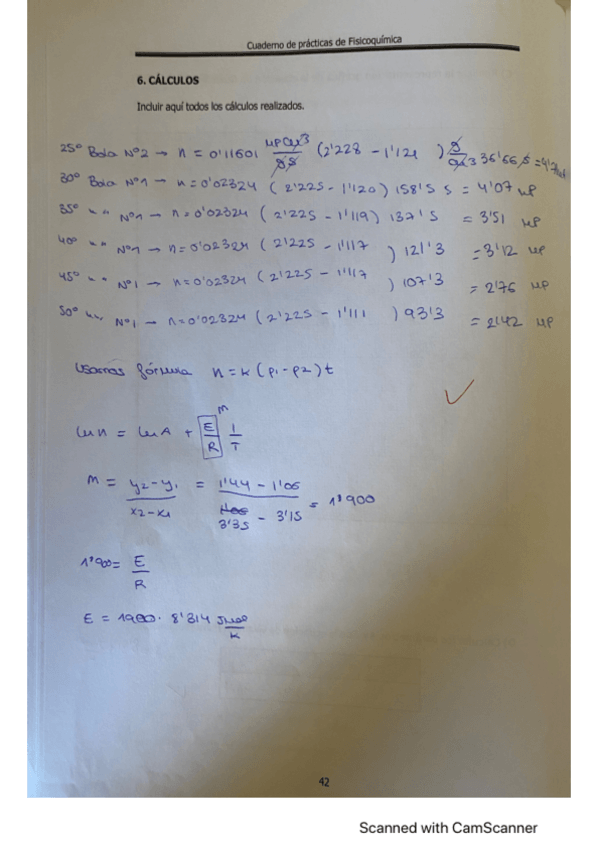 Cuaderno de prácticas de Fisicoquímica
6. CÁLCULOS
Incluir aquí todos los cálculos realizados.
25º Bola Nº2 → n = 0'11601 (2'228 - 1'121) 36'66 s = 4'7
30º Bola Nº1 → n = 0'02324 (2'225 - 1'120) 158'5 s = 4'07 μp
35º " " Nº1 → n = 0'02324 (2'225 - 1'119) 137's = 3'51 μp
40º " " Nº1 → n = 0'02324 (2'225 - 1'117) 121'3 = 3'12 μp
45º " " Nº1 → n = 0'02324 (2'225 - 1'117) 107'3 = 2'76 μp
50º " " Nº1 → n = 0'02324 (2'225 - 1'111) 93'3 = 2'42 μp
Usamos fórmula n = k (ρ1 - ρ2) t
m
ln n = ln A + E/R 1/T
m = y2 - y1 / x2 - x1 = 1'44 - 1'06 / 3'35 - 3'15 = 1'900
1'900 = E/R
E = 1900 · 8'314
42
Scanned with CamScanner